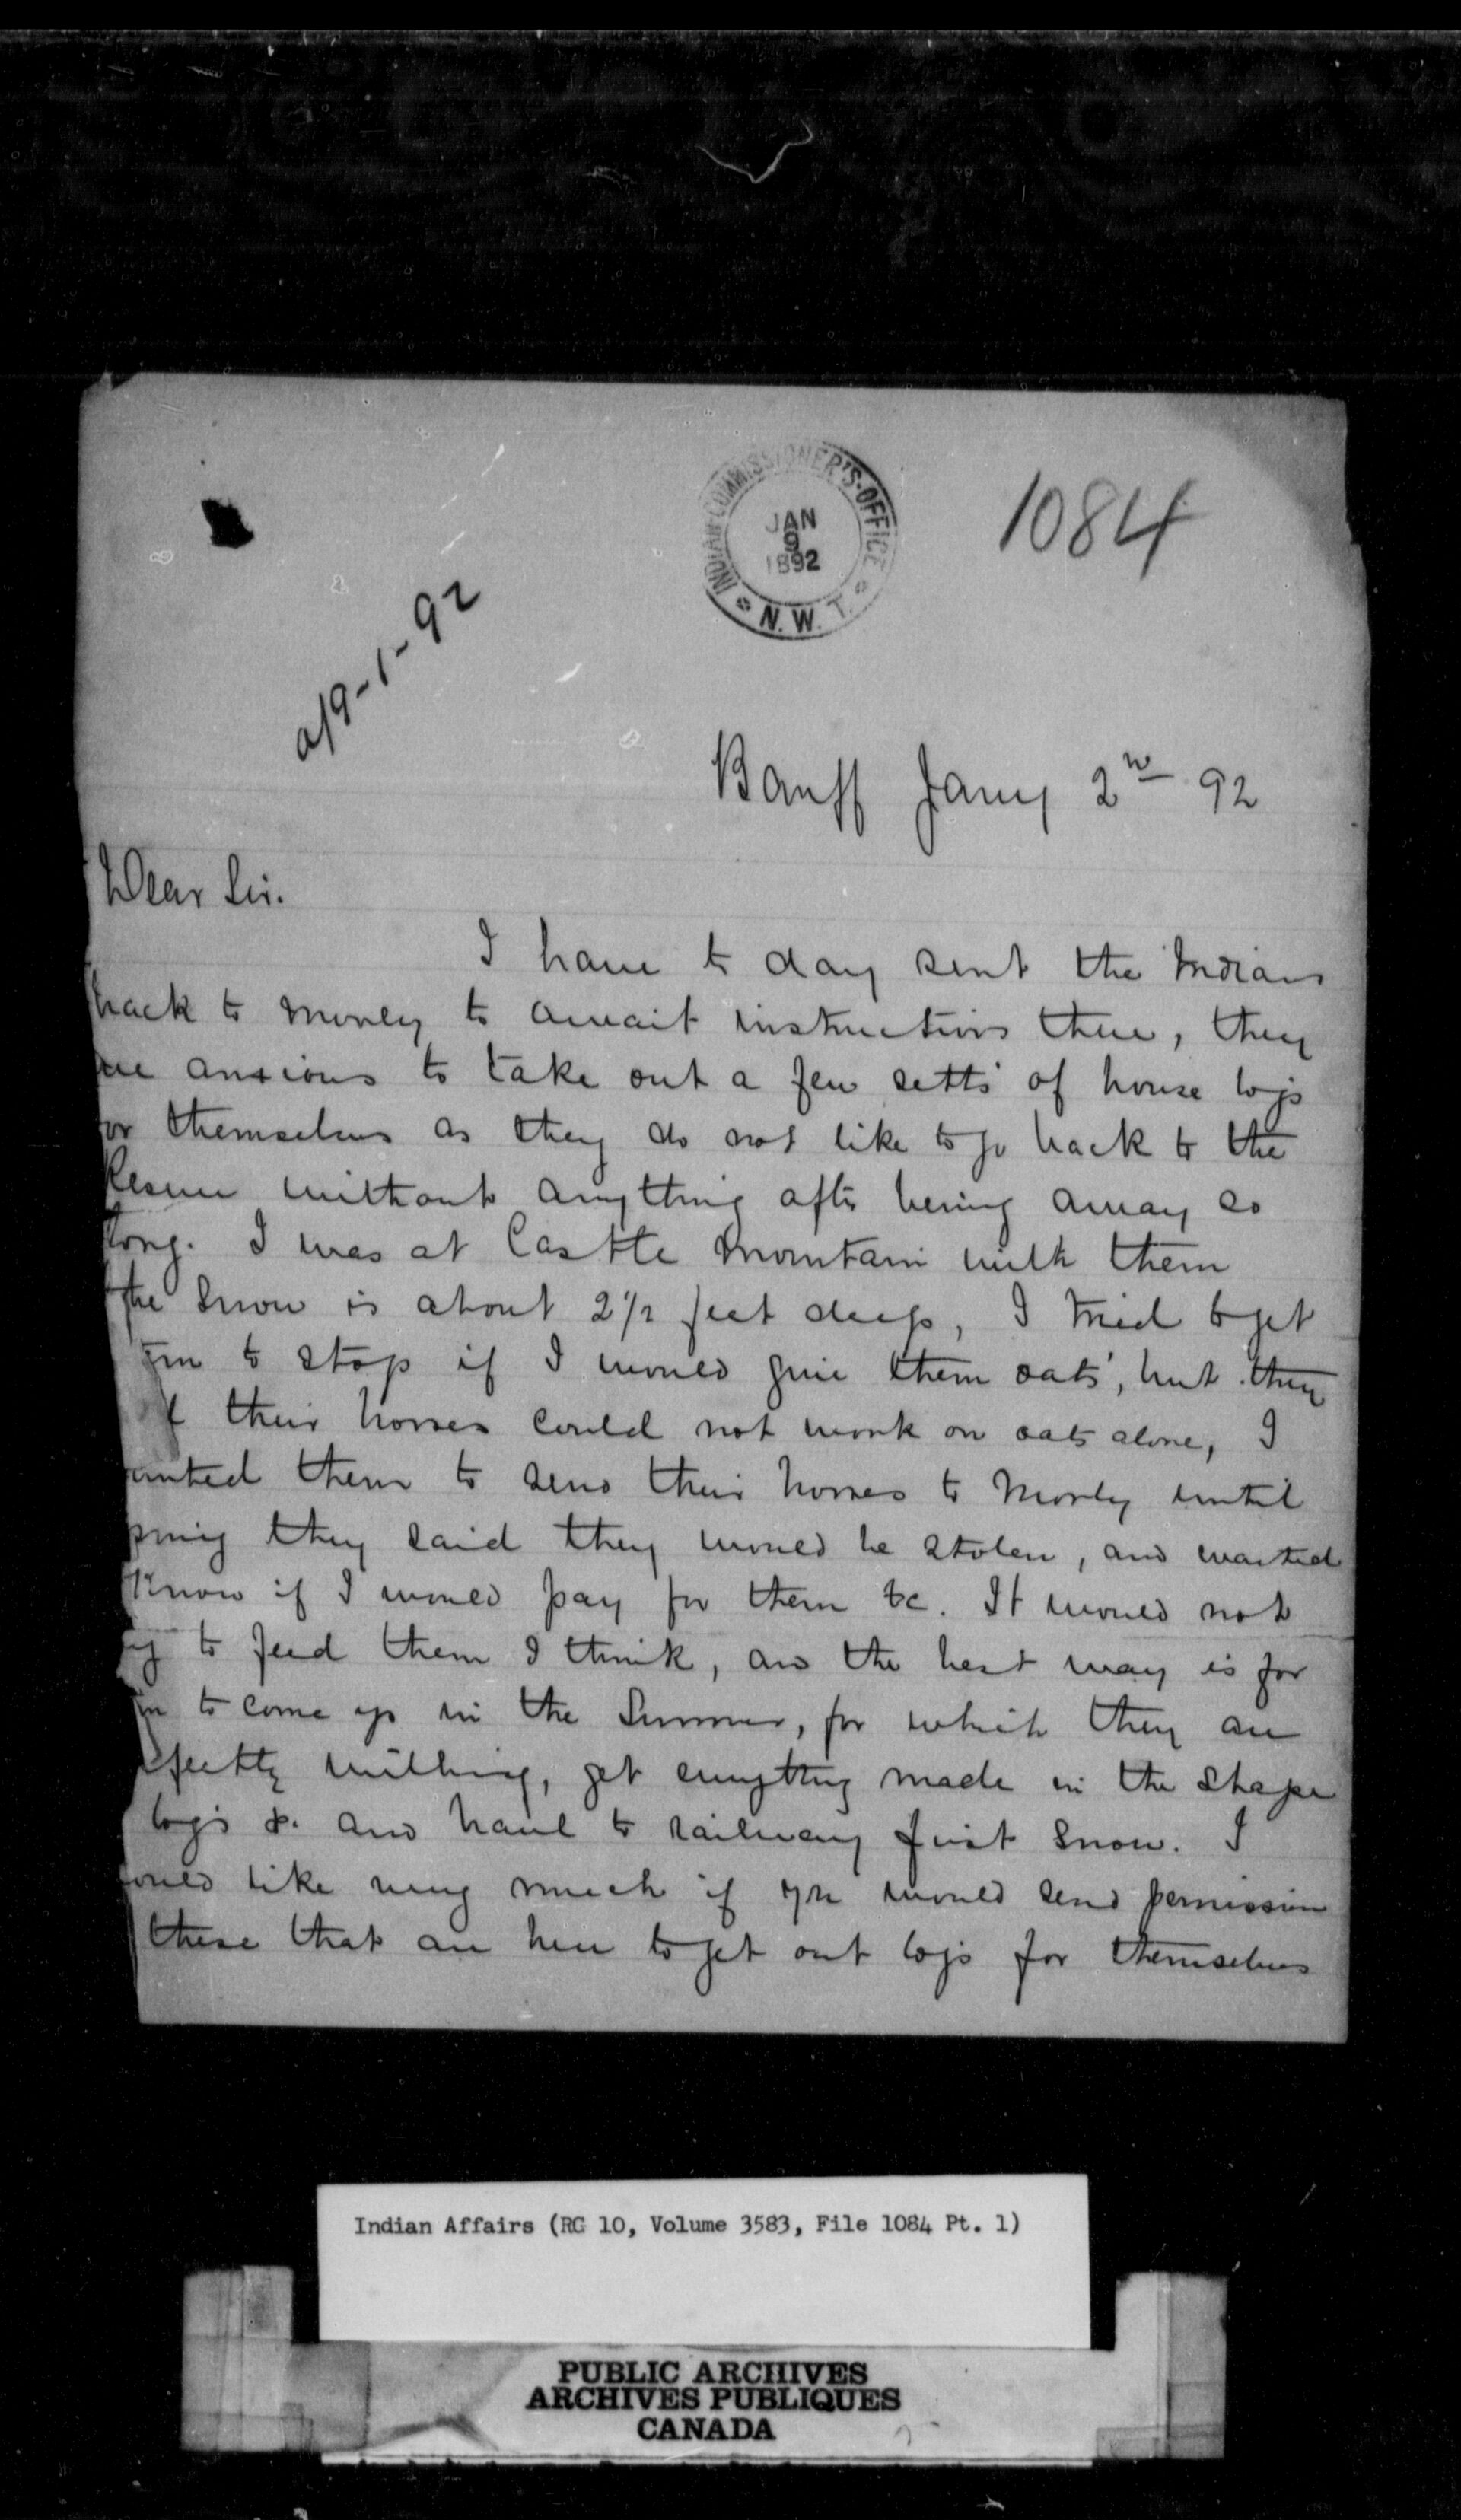 INDIAN COMMISSIONER'S-OFFICE
JAN
9
1892
N. W. T.
1084
a/9-1-92
Banff Jany 2nd 92
Dear Sir.
I have to day sent the Indians
back to Morley to await instructions there, they
are anxious to take out a few setts of house logs
for themselves as they do not like to go back to the
Reserve without anything after being away so
long. I was at Castle Mountain with them
the Snow is about 2 1/2 feet deep, I tried to get
em to stop if I would give them oats, but they
their horses could not work on oats alone, I
anted them to send their horses to Morley until
pring they said they would be stolen, and wanted
Know if I would pay for them &c. It would not
ay to feed them I think, and the best way is for
em to come up in the Summer, for which they are
erfectly willing, get everything made in the shape
logs &. and haul to railway first Snow. I
ould like very much if you would send permission
these that are here to get out logs for themselves
Indian Affairs (RG 10, Volume 3583, File 1084 Pt. 1)
PUBLIC ARCHIVES
ARCHIVES PUBLIQUES
CANADA